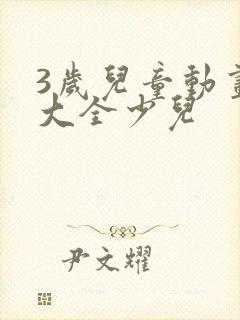 3歲兒童動畫
大全少兒
尹文耀